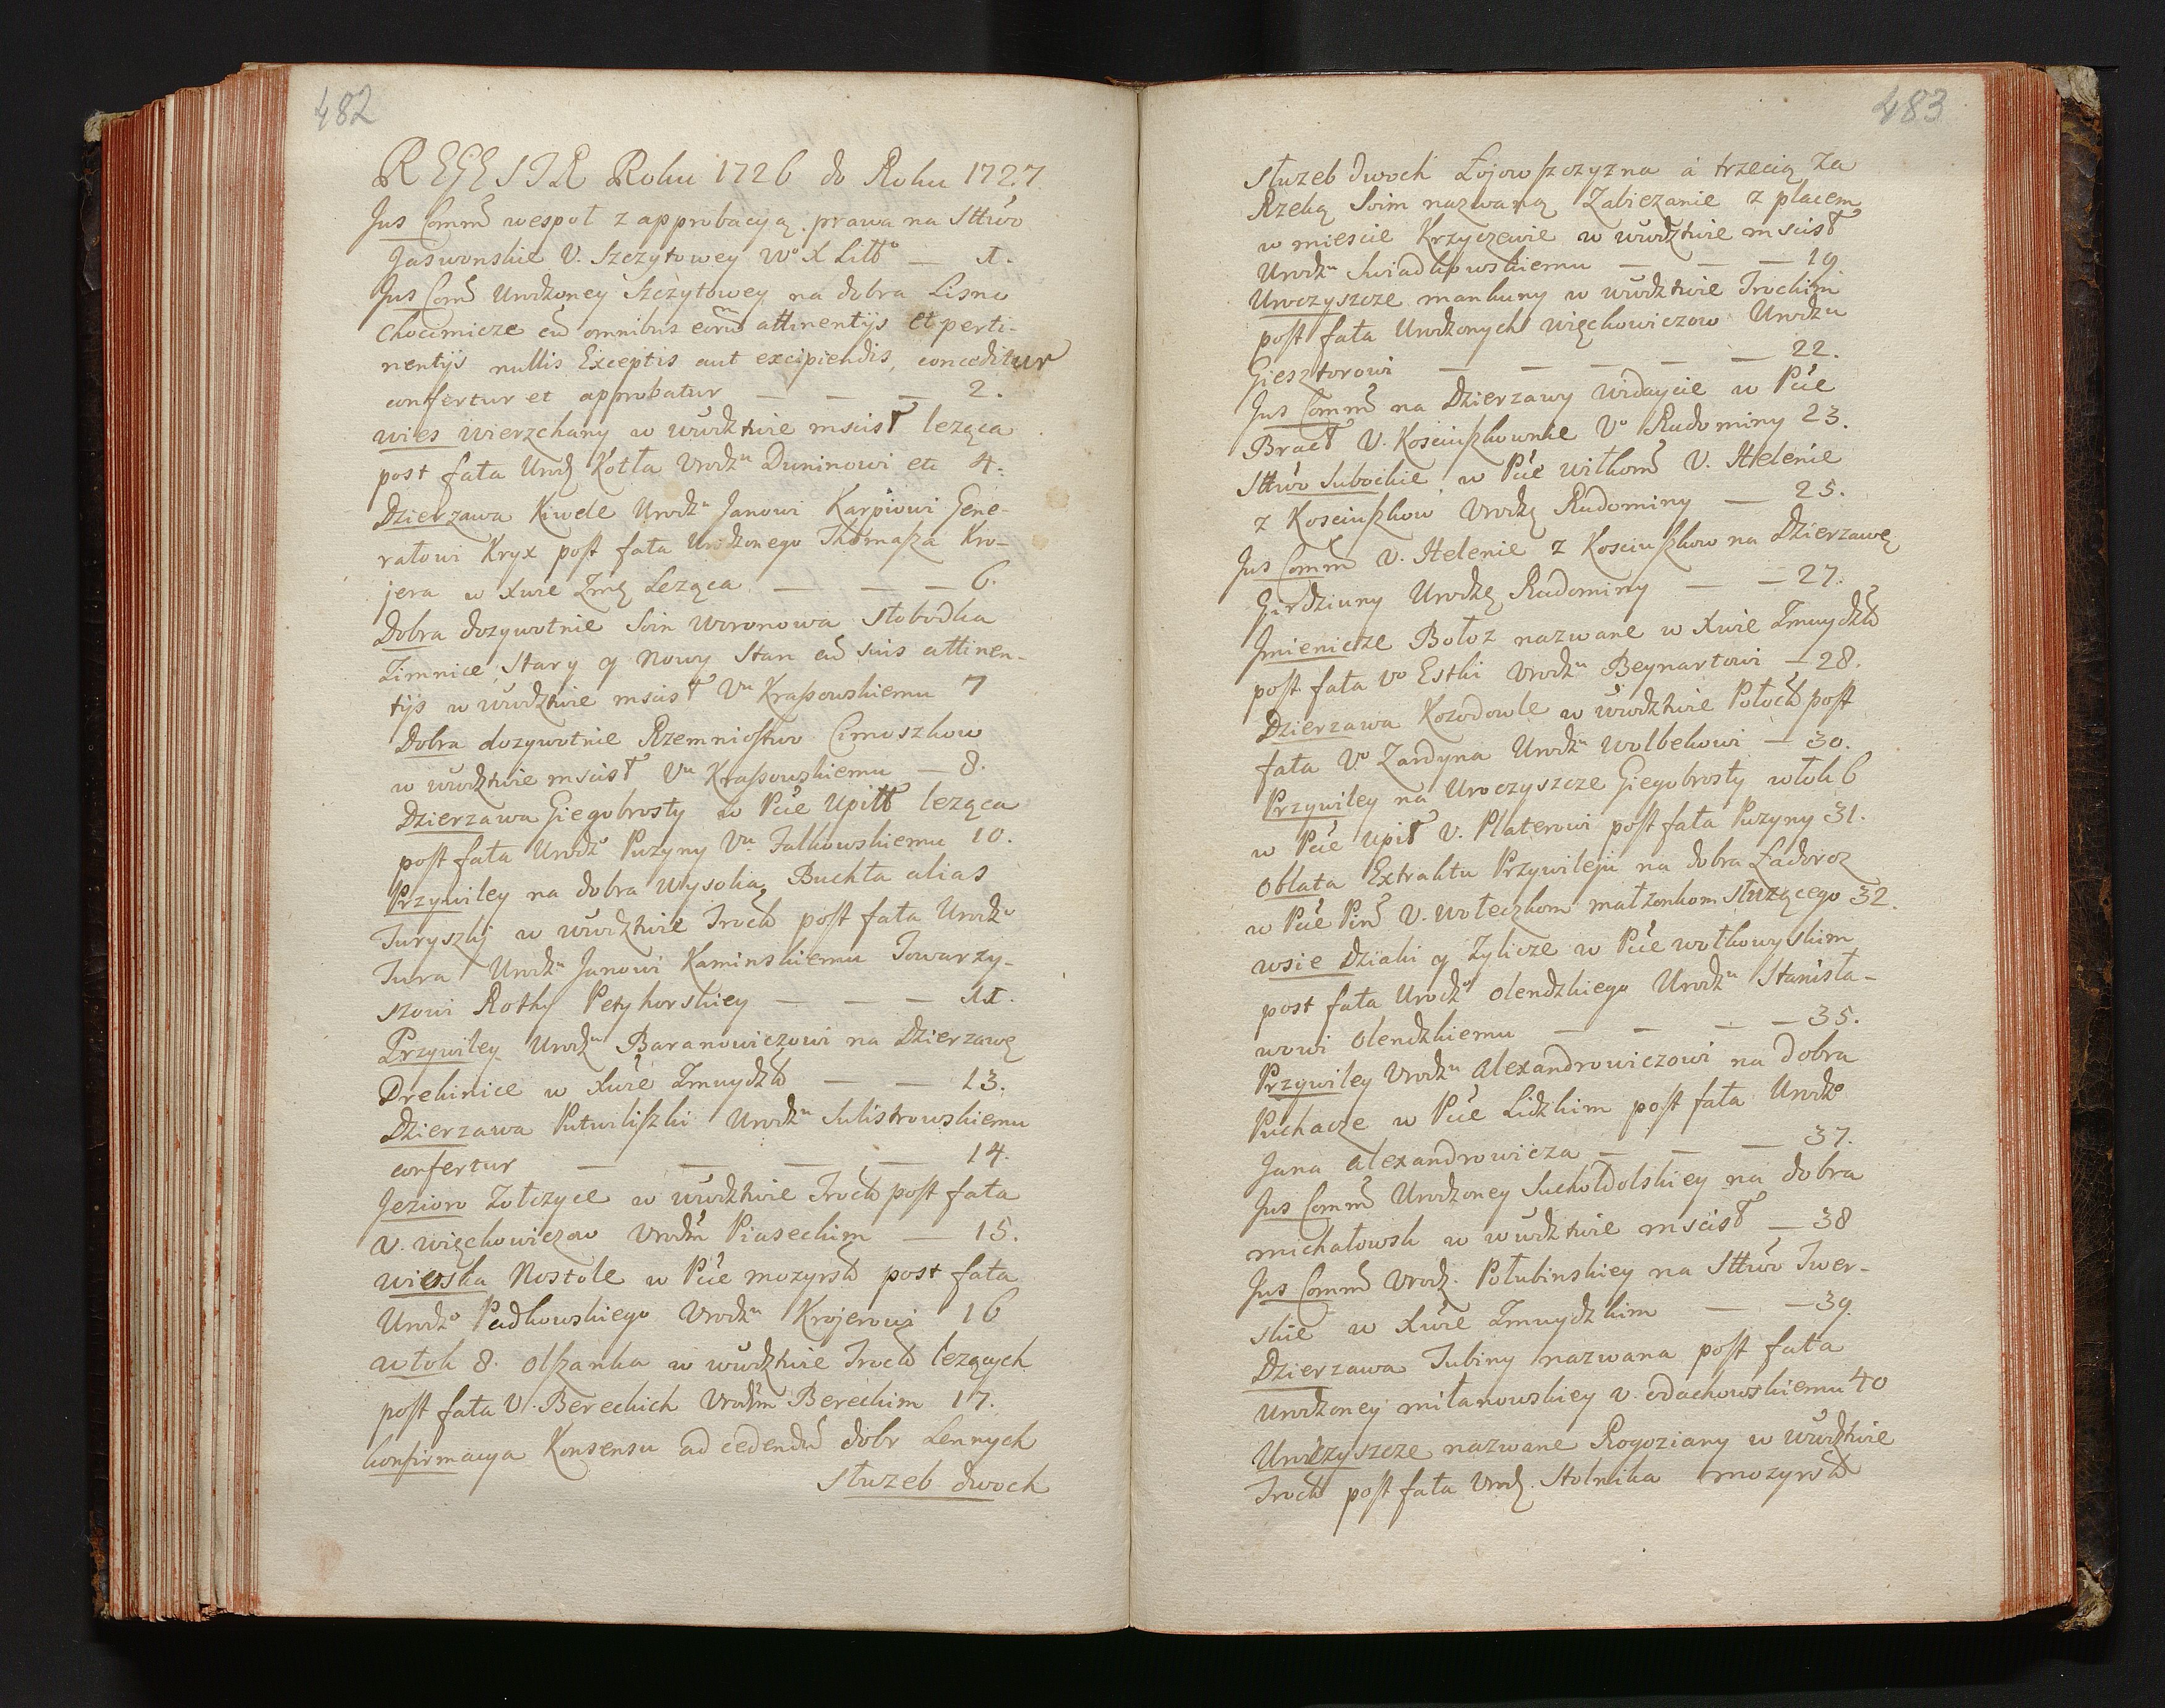 482
REGESTR Roku 1726 do Roku 1727.
Jus Comm̄ wespoł z approbacyą prawa na Sttwo
Jaswonskie U. Szczytowey Wº X Litt° — 1.
Jus Com̄ Urodzoney Szczytowey na dobra Lisno
Chocimicze cū omnibus eorū attinentijs et perti-
nentijs nullis Exceptis aut excipiendis, conceditur
confertur et approbatur — — — 2.
wies Wierzchany w wwdztwie mscisł leząca
post fata Urodz Kotła Urodzu Duninowi etc 4.
Dzierzawa Kiwele Urodzu Janowi Karpiowi Gene-
rałowi Kryx post fata Urodzonego Thomasza Kro-
jera w Xwie Zmę Leząca — — — 6.
Dobra dozywotnie Soin Woronowa Słobodka
Zimnice, Stary y Nowy Stan cū suis attinen-
tijs w wwdztwie mscisł Vu Krassowskiemu 7
Dobra dozywotnie Rzemniostwo Cimoszkow
w wwdztwie mscisł Vu Krassowskiemu — 8.
Dzierzawa Giegobrosty w Pcie Upitt leząca
post fata Urodz° Puzyny Vu Falkowskiemu 10.
Przywiley na dobra Wysoka Buchta alias
Turyszky w wwdztwie Trock post fata Urodz°
Tura Urodzu Janowi Kaminskiemu Towarzy-
szowi Rothy Petyhorskiey — — — 11.
Przywiley Urodzu Baranowiczowi na Dzierzawę
Drekinice w Xwie Zmuydzk — — 13.
Dzierzawa Putwiliszki Urodzu Sulistrowskiemu
confertur — — — — 14.
Jezioro Zołczyce w wwdztwie Trock post fata
U. Więckowiczow Urodzm Piaseckim — 15.
wioska Nostole w Pcie mozyrsk post fata
Urodz° Padkowskiego Urodzu Krojerowi 16
włok 8. Olszanka w wwdztwie Trock lezących
post fata U. Bereckich Urodzm Bereckim 17.
konfirmacya Konsensu ad cedendū dobr Lennych
Słuzeb dwoch
483
Słuzeb dwoch Łojowszczyzna á trzecią za
Rzeką Soim nazwaną Zabiezanie z placem
w miescie Krzyczewie w wwdztwie mscisł
Urodzu Swiadkowskiemu — — — 19
Uroczyszcze mankuny w wwdztwie Trockim
post fata Urodzonych Więckowiczow Urodzu
Giesztorowi — — — — — 22.
Jus Comm̄ na Dzierzawy Widaycie w Pcie
Bracł V. Kosciuszkownie Vº Rudominy 23.
Sttwo Subockie w Pcie Wiłkom V. Helenie
z Kosciuszkow Urodzę Rudominy — 25.
Jus Comm̄ V. Helenie z Kosciuszkow na Dzierzawę
Girdziuny Urodzę Rudominy — — 27.
Jmienicze Bołoz nazwane w Xwie Zmuydzk
post fata Vº Estki Urodzu Beynartowi — 28.
Dzierzawa Kozodowle w wwdztwie Połock post
fata Vº Zardyna Urodzu Wolbekowi — 30.
Przywiley na Uroczyszcze Giegobrosty włok 6
w Pcie Upit V. Platerowi post fata Puzyny 31.
Oblata Extraktu Przywileju na dobra Ładoroz
w Pcie Pin̄ V. Woteczkom małzonkom słuzącego 32.
wsie Dziaki y Zylicze w Pcie wołkowyskim
post fata Urodz° Olendzkiego Urodzu Stanisła-
wowi Olendzkiemu — — — — 35.
Przywiley Urodzu Alexandrowiczowi na dobra
Puchacze w Pcie Lidzkim post fata Urodz°
Jana Alexandrowicza — — — 37.
Jus Comm̄ Urodzoney Suchołdolskiey na dobra
michałowsk w wwdztwie mscisł — 38
Jus Comm̄ Urodz. Połubinskiey na Sttwo Twer-
skie w Xwie Zmuydzkim — — 39.
Dzierzawa Tubiny nazwana post fata
Urodzoney miłanowskiey V. Odachowskiemu 40
Uroczyszcze nazwane Rogoziany w wwdztwie
Trock post fata Urodz. Stolnika mozyrsk